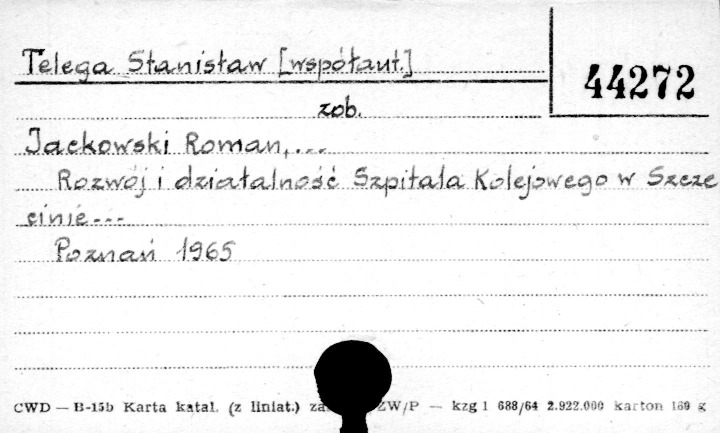 Telega Stanisław [współaut.]
44272
zob.
Jackowski Roman,...
Rozwój i działalność Szpitala Kolejowego w Szcze
cinie...
Poznań 1965
CWD — B-15b Karta katal. (z liniat.) ZW/P — kzg 1 688/64 2.922.000 karton 160 g